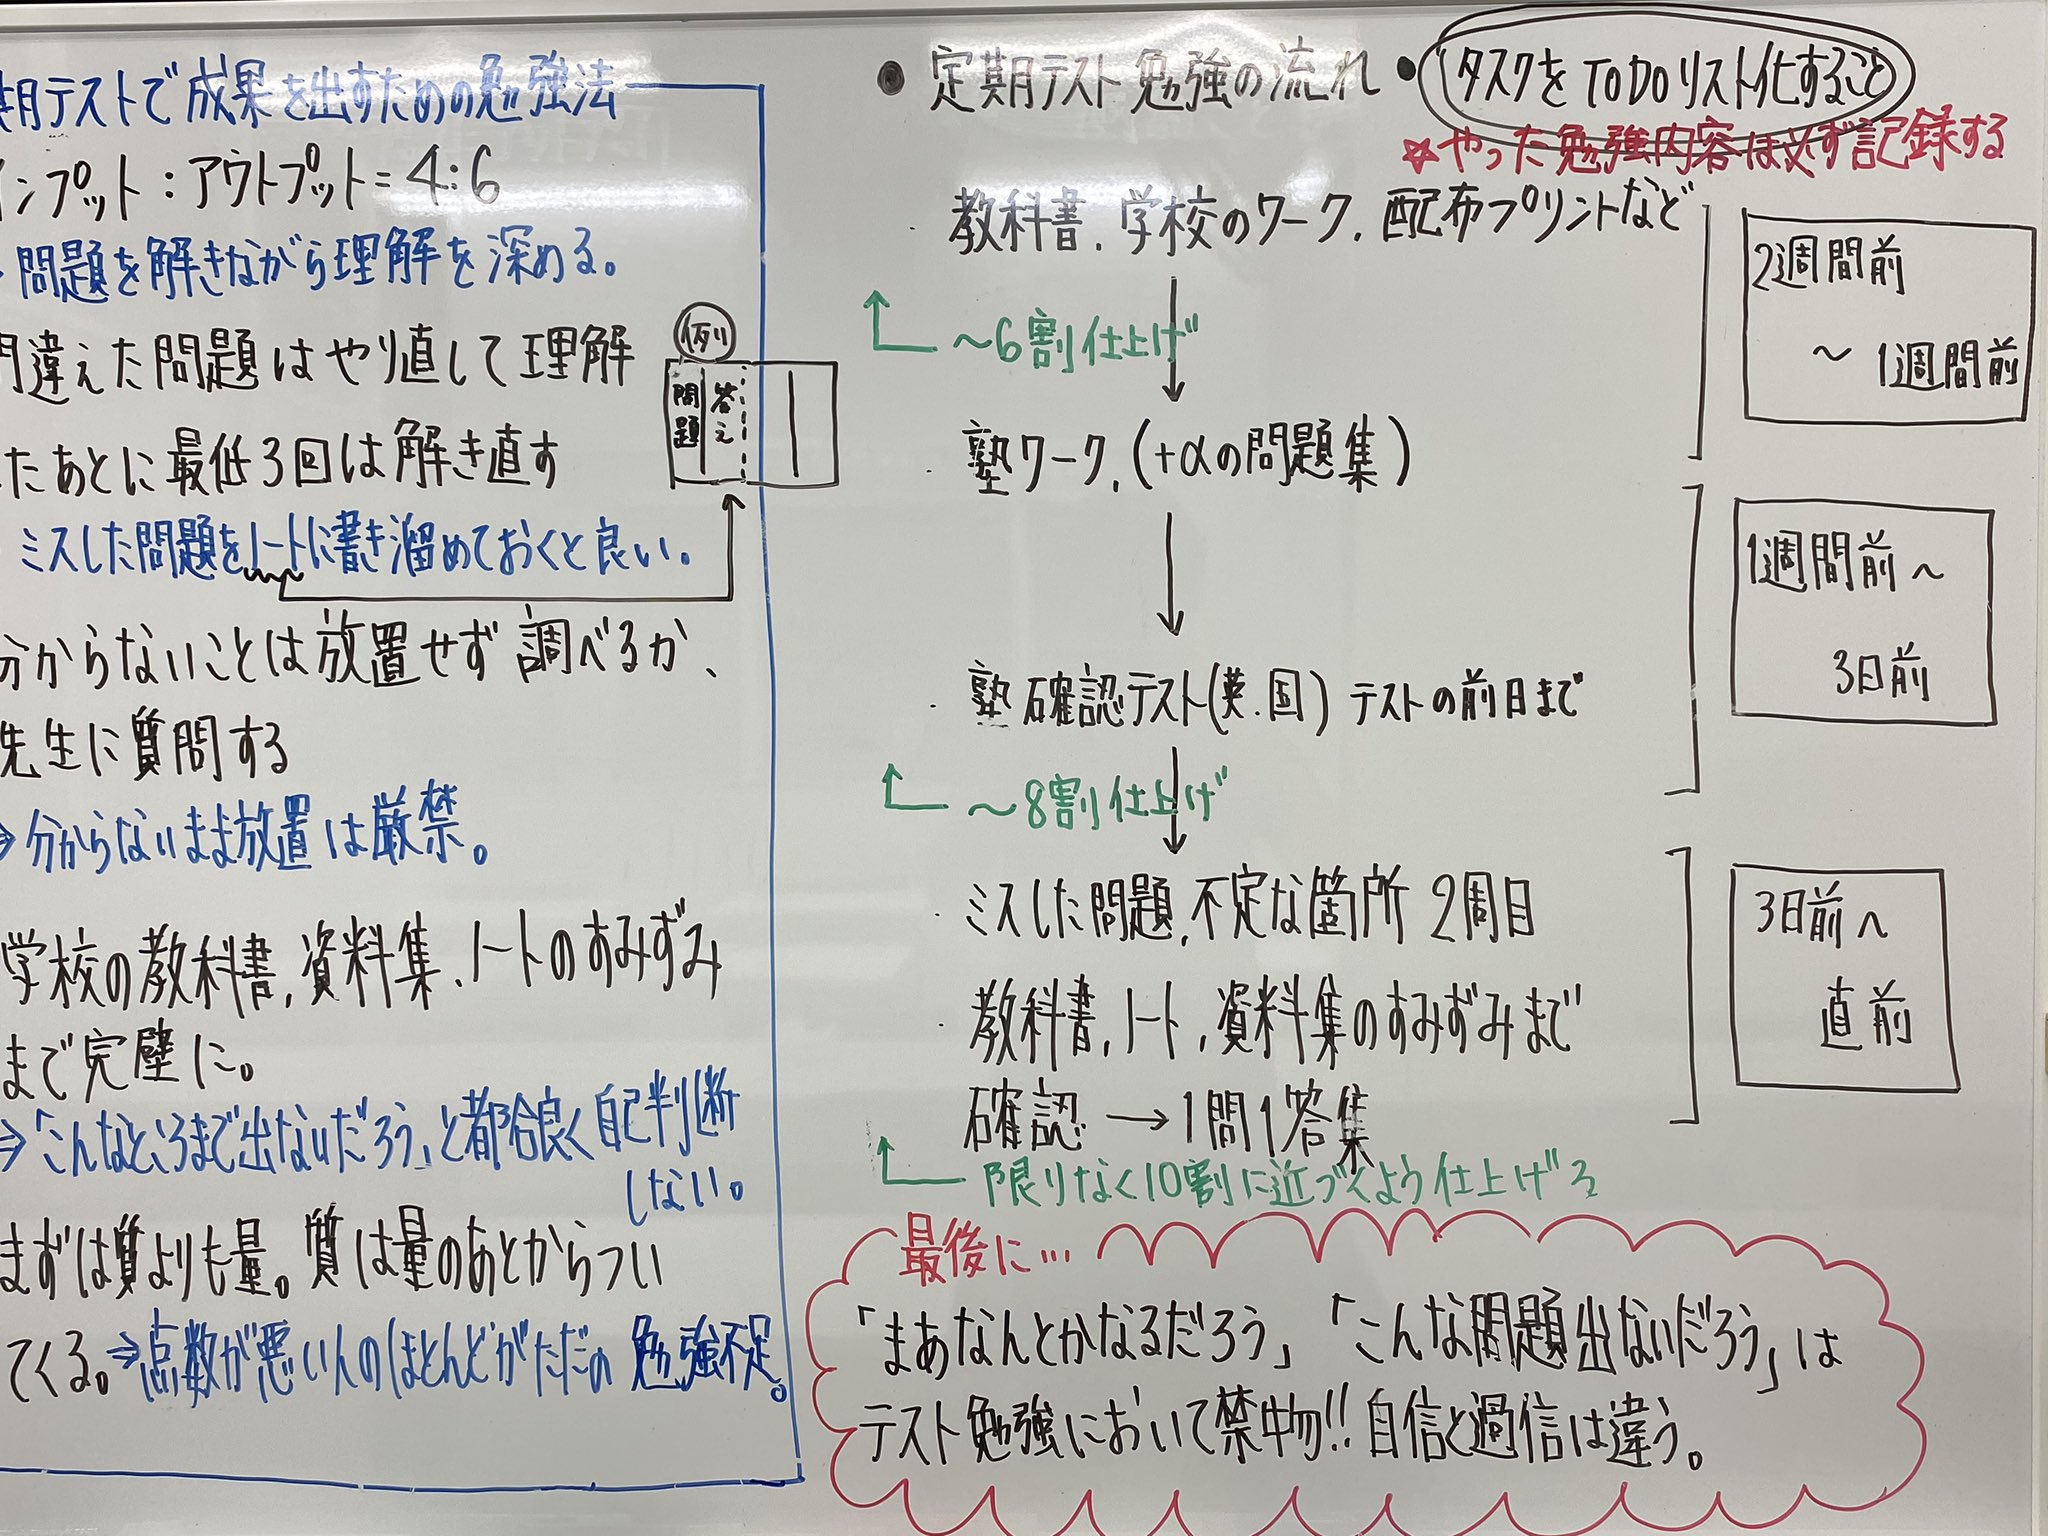 期テストで成果を出すための勉強法
インプット:アウトプット=4:6
問題を解きながら理解を深める。
間違えた問題はやり直して理解
たあとに最低3回は解き直す
ミスした問題をノートに書き溜めておくと良い。
例
問題
答え
分からないことは放置せず調べるか、
先生に質問する
⇒分からないまま放置は厳禁。
学校の教科書,資料集,ノートのすみずみ
まで完璧に。
⇒「こんなところまで出ないだろう」と都合良く自己判断
しない。
まずは質よりも量。質は量のあとからつい
てくる。⇒点数が悪い人のほとんどがただの勉強不足。
● 定期テスト勉強の流れ
● タスクをTODOリスト化すること
☆やった勉強内容は必ず記録する
・教科書,学校のワーク,配布プリントなど
↓
~6割仕上げ
・塾ワーク,(+αの問題集)
↓
・塾確認テスト(英.国)テストの前日まで
↓
~8割仕上げ
・ミスした問題,不定な箇所2周目
・教科書,ノート,資料集のすみずみまで
確認→1問1答集
限りなく10割に近づくよう仕上げる
2週間前
~1週間前
1週間前~
3日前
3日前~
直前
最後に…
「まあなんとかなるだろう」「こんな問題出ないだろう」は
テスト勉強において禁物!!自信と過信は違う。